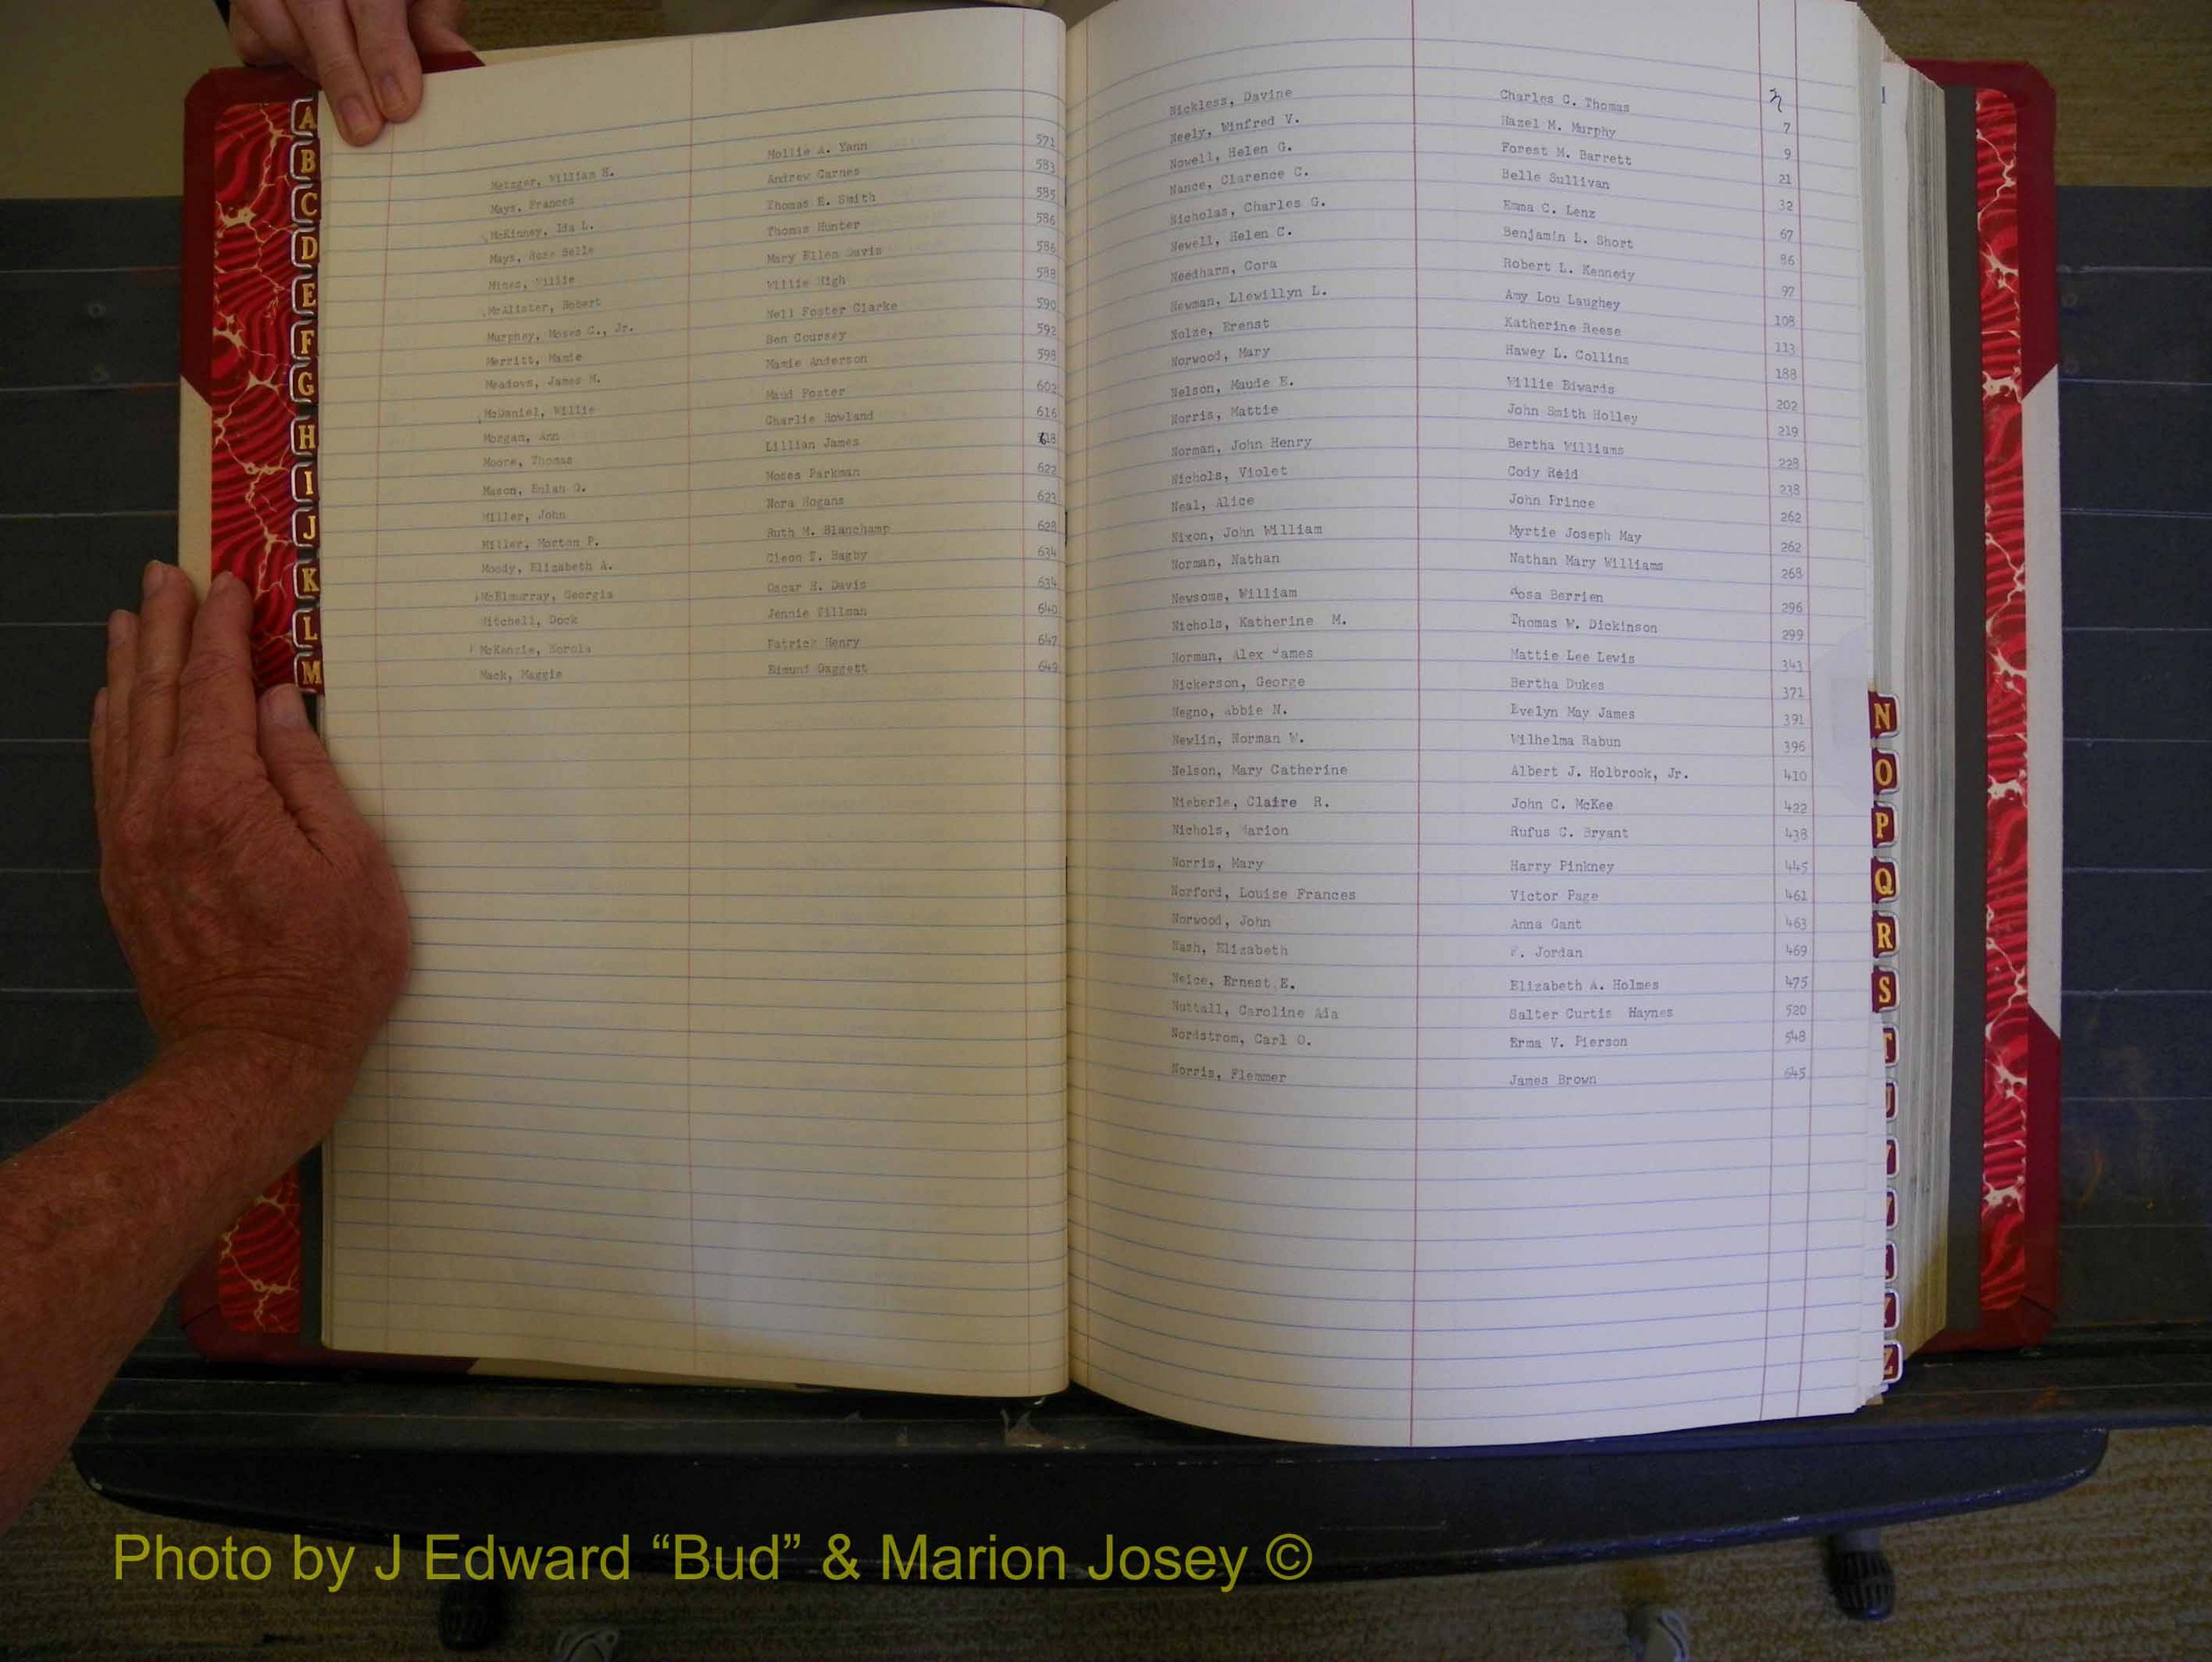 Metzger, William H. Mollie A. Yann 571
Mays, Frances Andrew Carnes 583
McKinney, Ida L. Thomas E. Smith 585
Mays, Rosa Belle Thomas Hunter 586
Mines, Willie Mary Ellen Davis 586
McAlister, Robert Willie High 588
Murphey, Moses C., Jr. Nell Foster Clarke 590
Merritt, Mamie Ben Coursey 592
Meadows, James M. Mamie Anderson 598
McDaniel, Willie Maud Foster 602
Morgan, Ann Charlie Rowland 616
Moore, Thomas Lillian James 618
Mason, Eulah O. Moses Parkman 622
Miller, John Nora Hogans 623
Miller, Morton P. Ruth M. Blanchamp 628
Moody, Elizabeth A. Cleon T. Bagby 634
McElmurray, Georgia Oscar H. Davis 634
Mitchell, Dock Jennie Tillman 640
McKenzie, Patrick Henry 647
Mack, Maggie Edmund Daggett 649
Nickless, Davine Charles C. Thomas
Neely, Winfred V. Hazel M. Murphy 7
Nowell, Helen G. Forest M. Barrett 9
Nance, Clarence C. Belle Sullivan 21
Nicholas, Charles G. Emma C. Lenz 32
Newell, Helen C. Benjamin L. Short 67
Needham, Cora Robert L. Kennedy 86
Newman, Llewillyn L. Amy Lou Laughey 92
Nolze, Erenst Katherine Reese 108
Norwood, Mary Hawey L. Collins 113
Nelson, Maude E. Willie Edwards 188
Norris, Mattie John Smith Holley 202
Norman, John Henry Bertha Williams 219
Nichols, Violet Cody Reid 228
Neal, Alice John Prince 238
Nixon, John William Myrtie Joseph May 262
Norman, Nathan Nathan Mary Williams 262
Newsome, William Rosa Berrien 268
Nichols, Katherine M. Thomas W. Dickinson 296
Norman, Alex James Mattie Lee Lewis 299
Nickerson, George Bertha Dukes 343
Negno, Abbie N. Evelyn May James 371
Newlin, Norman W. Wilhelma Rabun 391
Nelson, Mary Catherine Albert J. Holbrook, Jr. 396
410
Nieberle, Claire R. John C. McKee 422
Nichols, Marion Rufus C. Bryant 438
Norris, Mary Harry Pinkney 445
Norford, Louise Frances Victor Page 461
Norwood, John Anna Gant 463
Nash, Elizabeth F. Jordan 469
Neice, Ernest E. Elizabeth A. Holmes 475
Nuttall, Caroline Ada Salter Curtis Haynes 520
Nordstrom, Carl O. Erma V. Pierson 548
Norris, Flemmer James Brown 645
A
B
C
D
E
F
G
H
I
J
K
L
M
N
O
P
Q
R
S
Z
Photo by J Edward “Bud” & Marion Josey ©